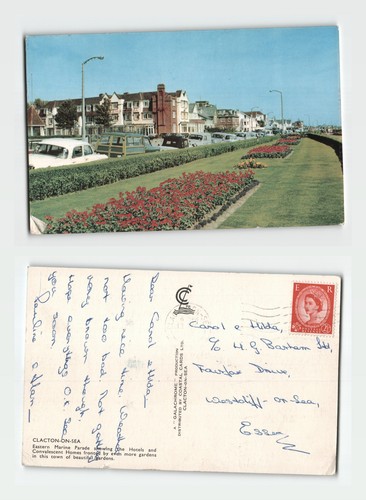 Dear Carol & Hilda,
Having nice time. Weather
not too bad. Not getting
very brown though.
Hope everything O.K. See
you soon
Pauline &
CLACTON-ON-SEA
Eastern Marine Parade showing the Hotels and
Convalescent Homes fronted by even more gardens
in this town of beautiful gardens.
A "GALACHROME" PRODUCTION
DISTRIBUTED BY COASTAL CARDS LTD.
CLACTON-ON-SEA
E R
Carol & Hilda,
Fairfax Drive,
Westcliff-on-Sea,
Essex